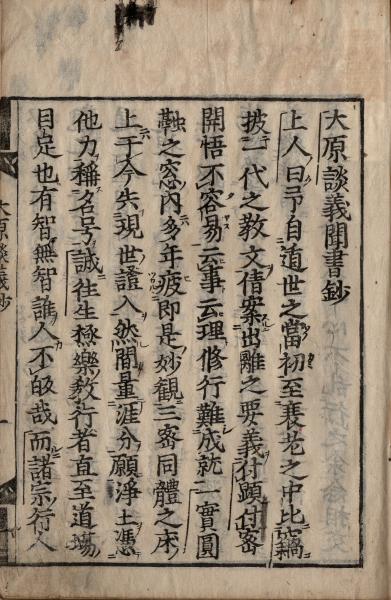 大原談義聞書鈔
上人曰予自遁世之當初至衰老之中比竊
披一代之教文倩案出離之要義付顯付密
開悟不容易云事云理修行難成就一實圓
融之窓內多年疲即是妙觀三密同體之床
上于今失現世證入然間量涯分願淨土憑
他力稱名号誠往生極樂教行者直至道場
目足也有智無智誰人不皈哉而諸宗行人
大原談義鈔